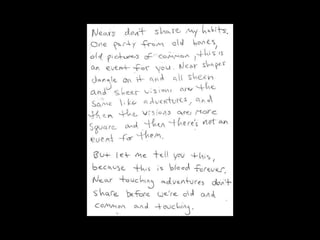 Nears don't share my habits.
One party from old bones,
old pictures of common, this is
an event for you. Near shapes
dangle on it and all sheen
and sheer visions are the
same like adventures, and
then the visions are more
square and then there's not an
event for them.
But let me tell you this,
because this is blend forever.
Near touching adventures don't
share before we're old and
common and touching.